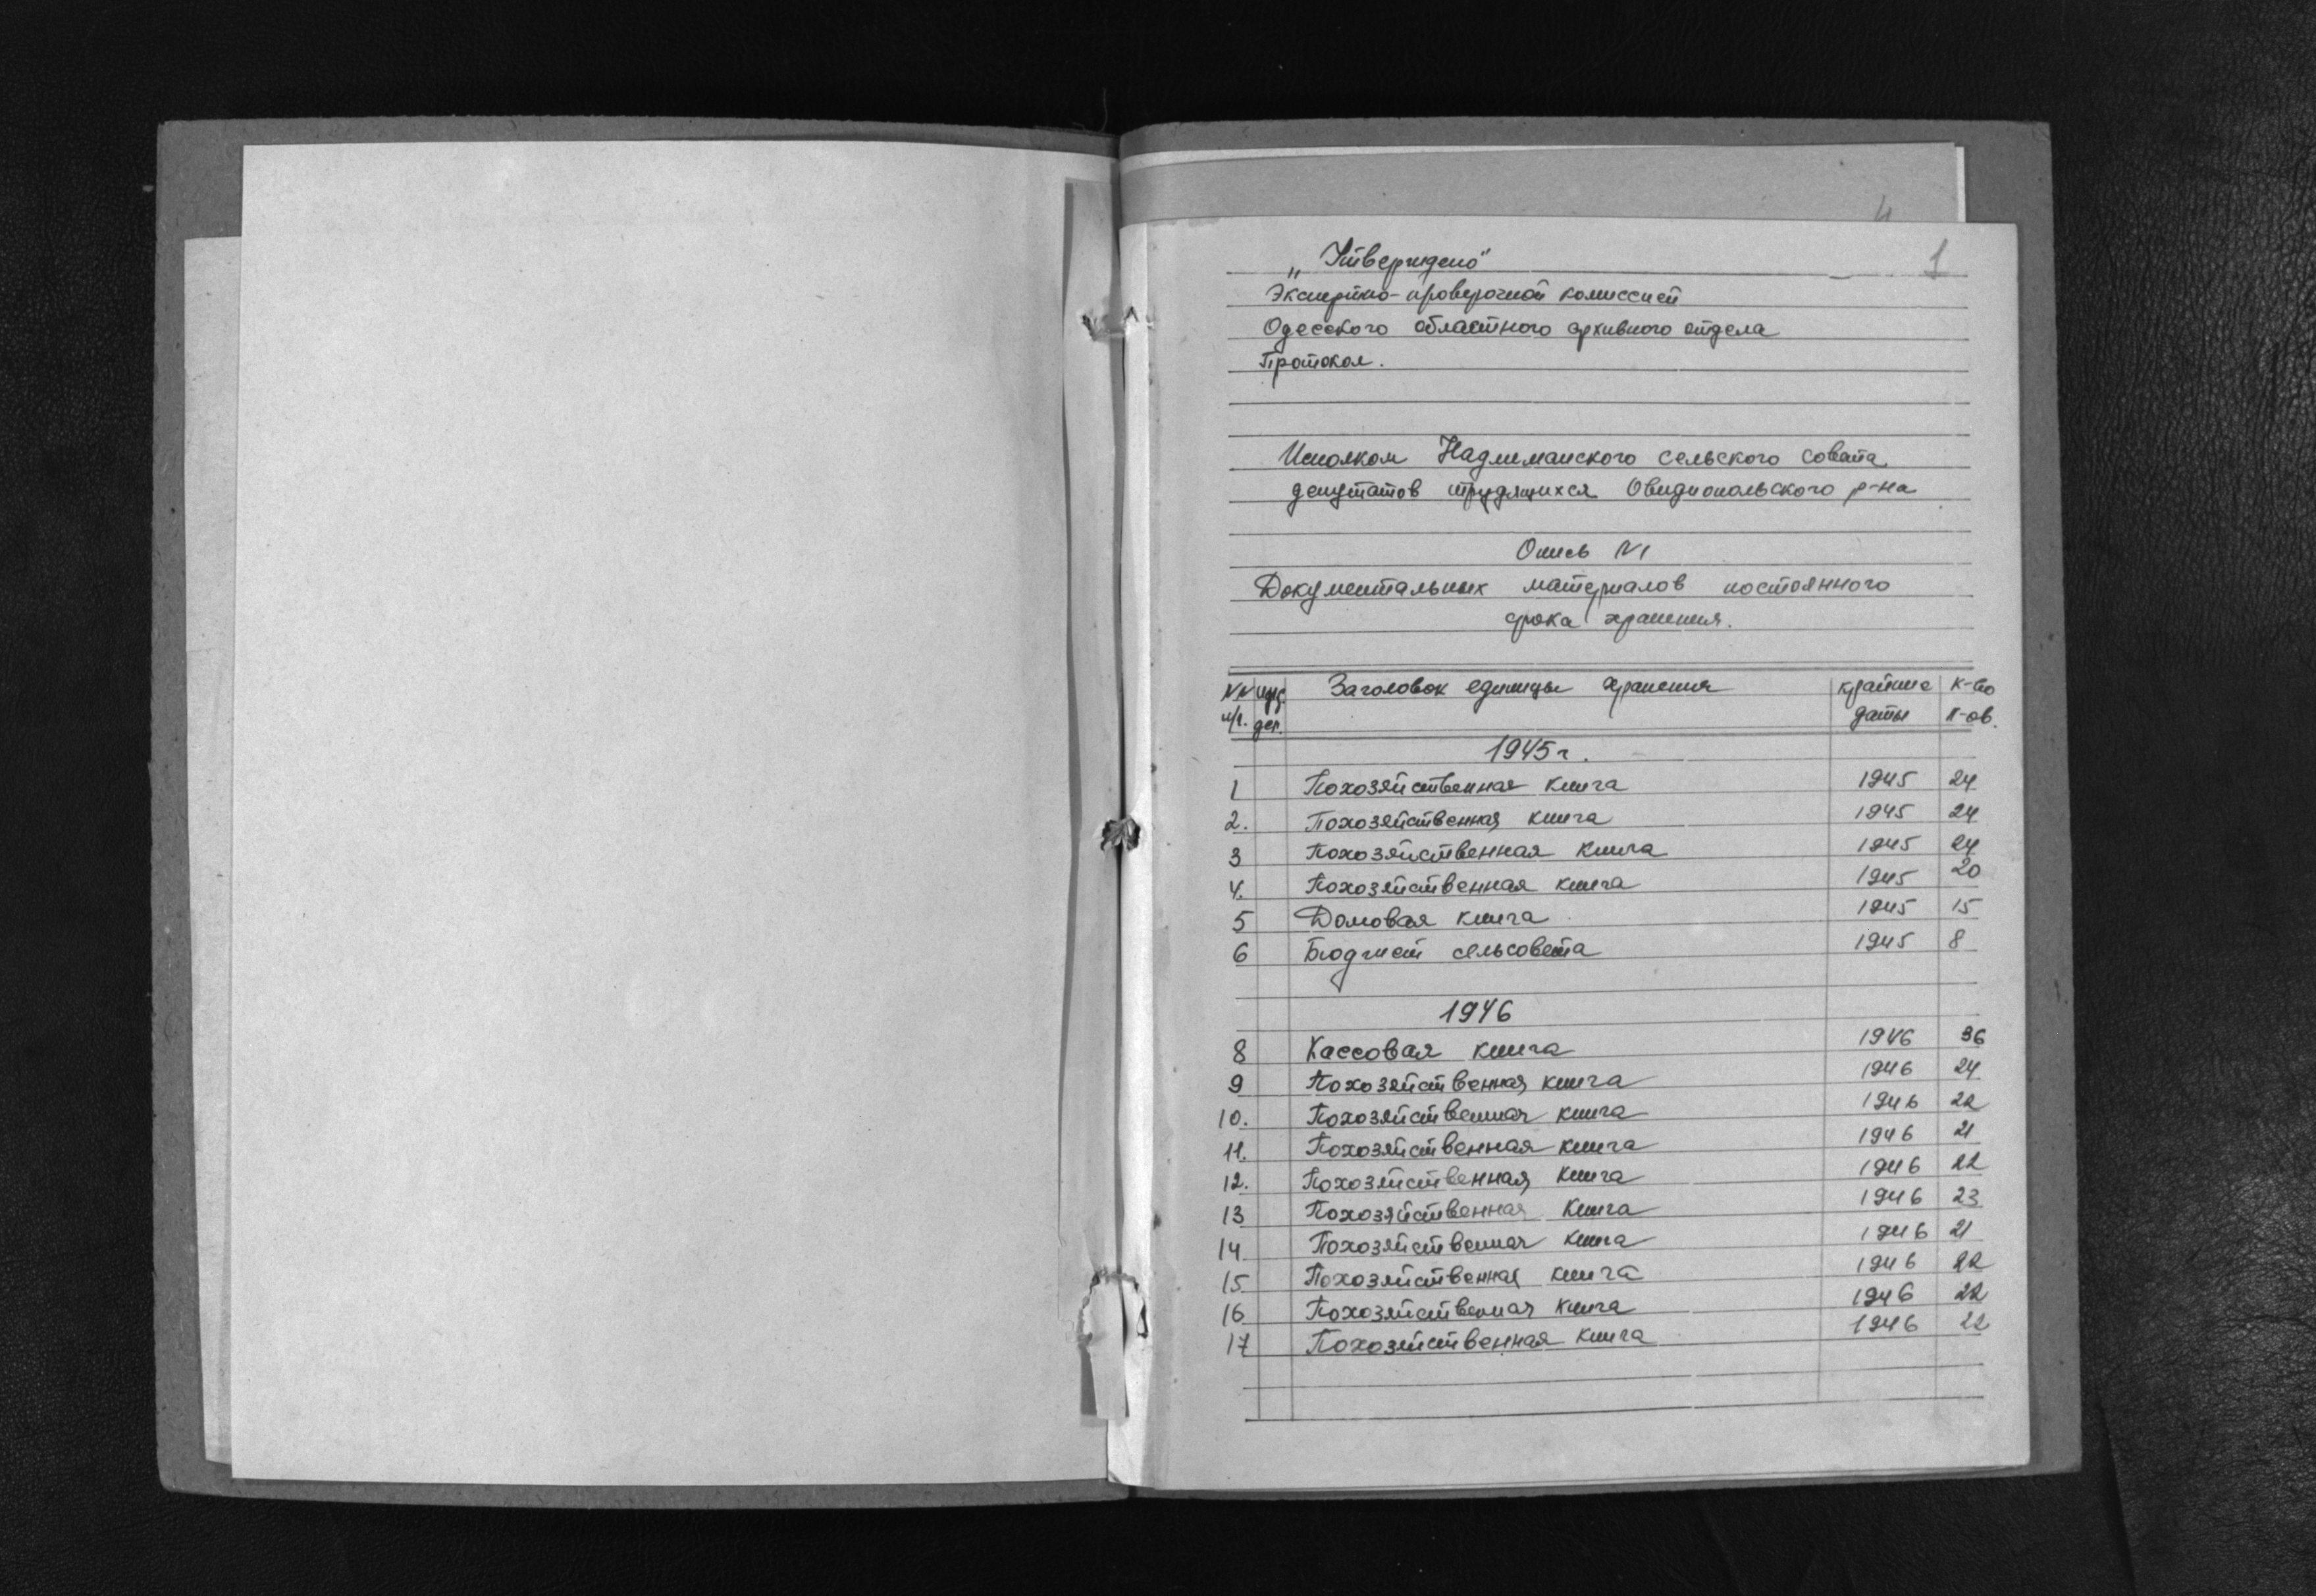 4
1
„Утверждено"
Экспертно-проверочной комиссией
Одесского областного архивного отдела
Протокол.
Исполком Надлиманского сельского совета
депутатов трудящихся Овидиопольского р-на
Опись N1
Документальных материалов постоянного
срока хранения.
NN инд. Заголовок единицы хранения крайние к-во
п/п. дел. даты л-ов.
1945 г.
1 Похозяйственная книга 1945 24
2. Похозяйственная книга 1945 24
3 Похозяйственная книга 1945 24
4. Похозяйственная книга 1945 20
5 Домовая книга 1945 15
6 Бюджет сельсовета 1945 8
1946
8 Кассовая книга 1946 36
9 Похозяйственная книга 1946 24
10. Похозяйственная книга 1946 22
11. Похозяйственная книга 1946 21
12. Похозяйственная книга 1946 22
13 Похозяйственная книга 1946 23
14. Похозяйственная книга 1946 21
15 Похозяйственная книга 1946 22
16 Похозяйственная книга 1946 22
17 Похозяйственная книга 1946 22